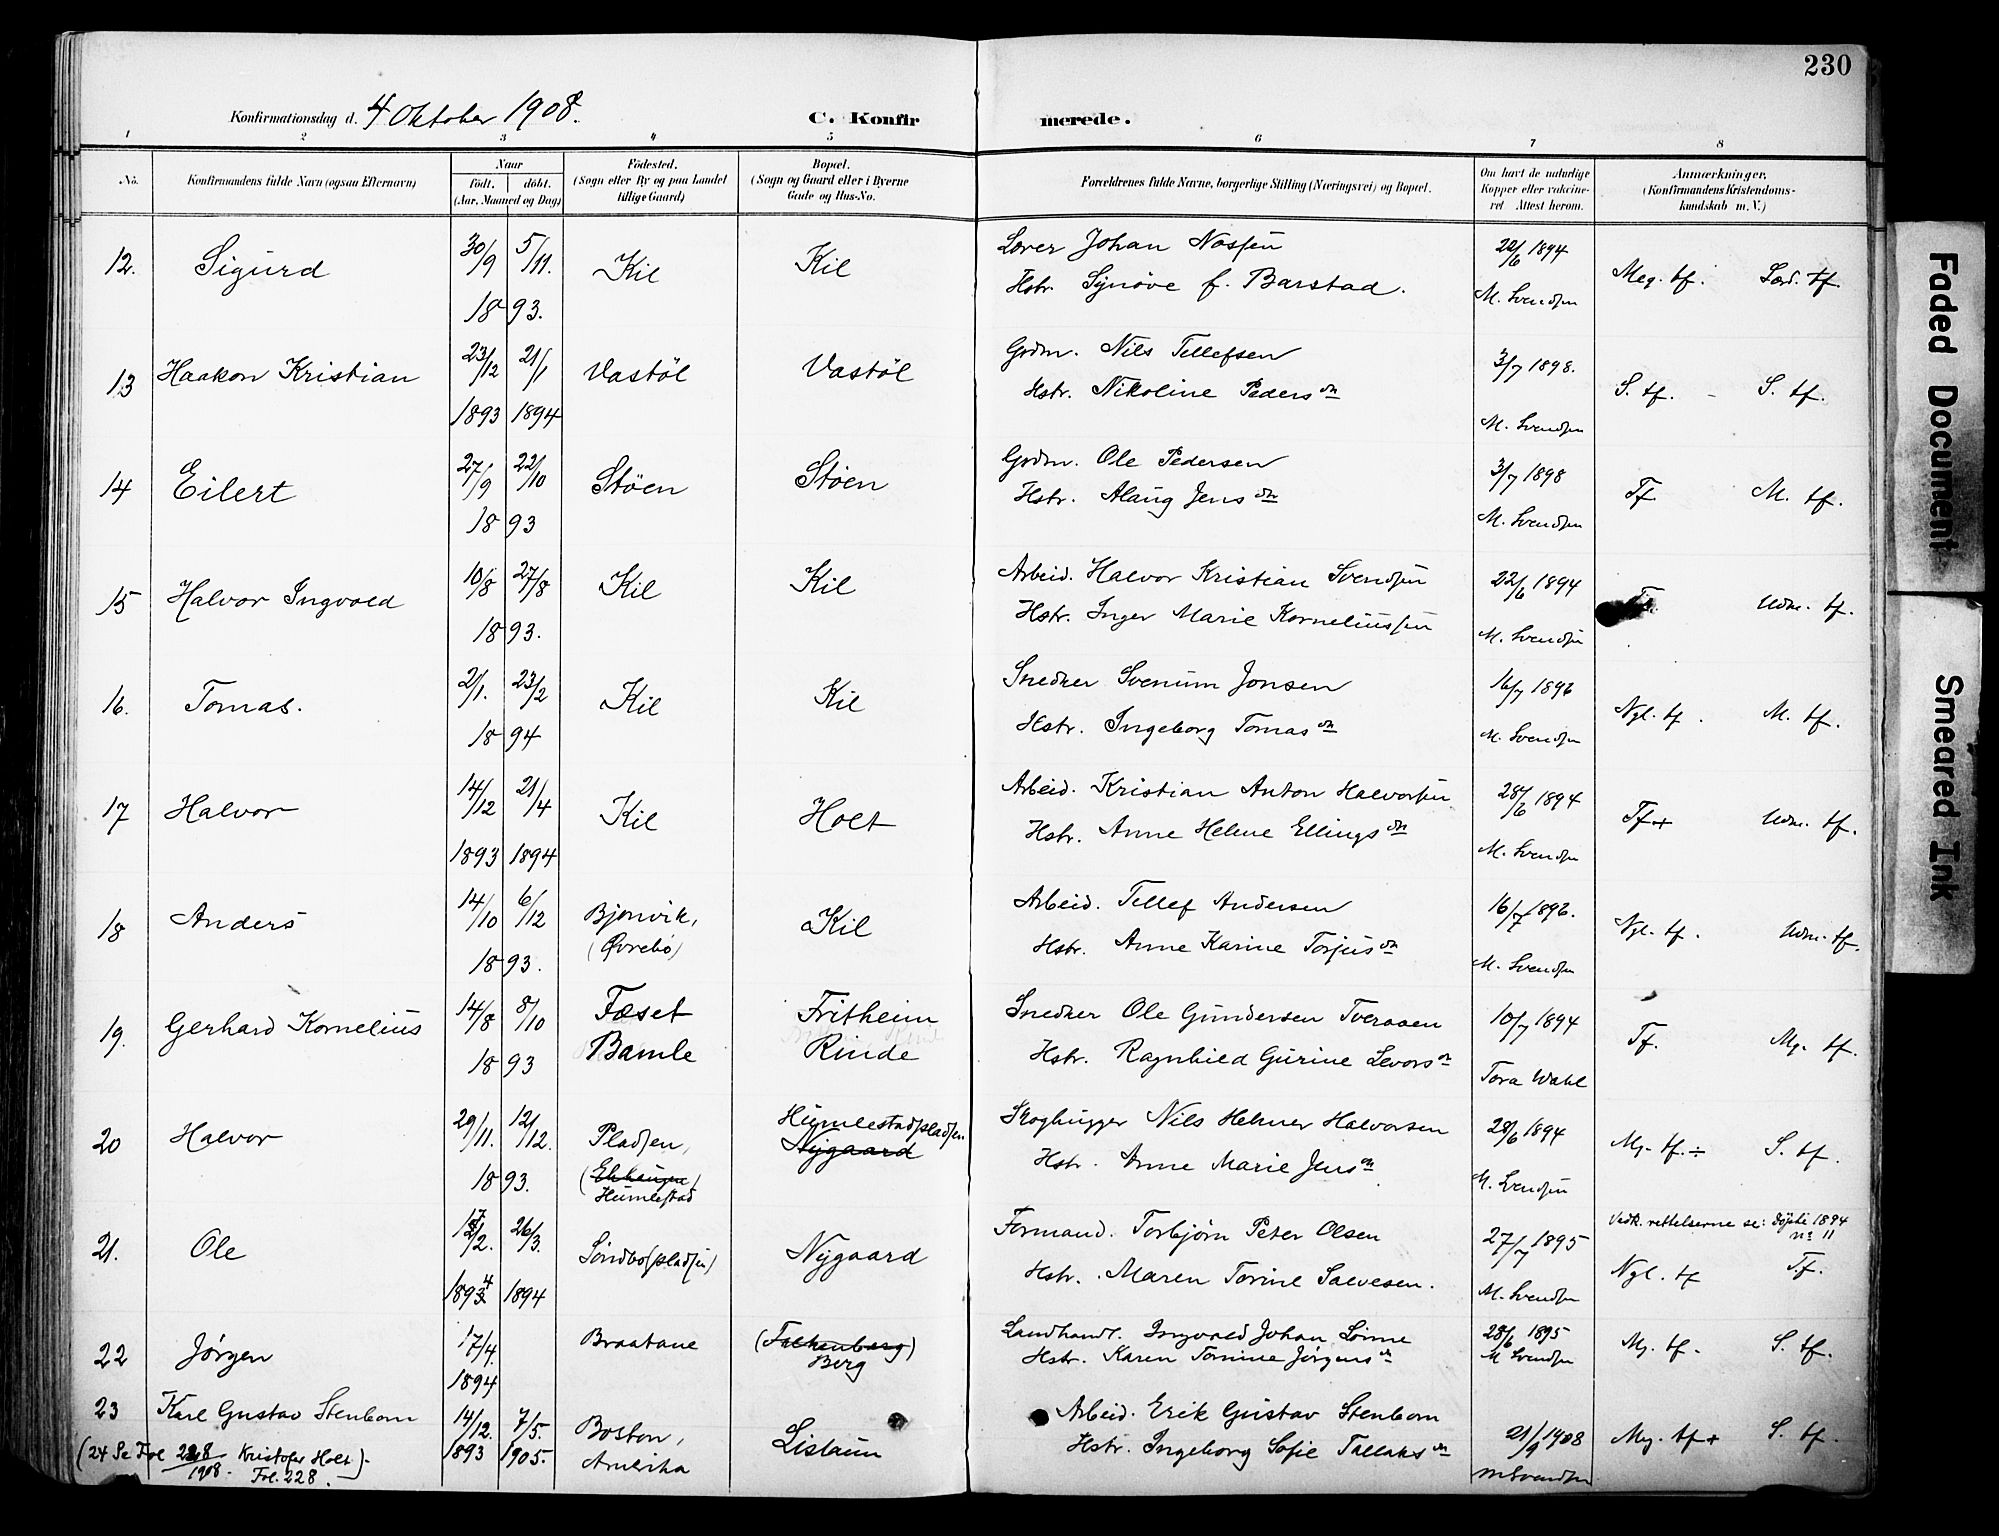 230
Konfirmationsdag d. 4 Oktober 1908.
C. Konfirmerede.
1 2 3 4 5 6 7 8
No. Konfirmandens fulde Navn (ogsaa Efternavn) Naar født. døbt. (Aar, Maaned og Dag) Fødested. (Sogn eller By og paa Landet tillige Gaard) Bopæl. (Sogn og Gaard eller i Byerne Gade og Hus-No. Forældrenes fulde Navne, borgerlige Stilling (Næringsvei) og Bopæl. Om havt de naturlige Kopper eller vaksineret Attest herom. Anmærkninger. (Konfirmandens Kristendomskundskab m. V.)
12. Sigurd 30/9 5/11. 1893. Kil Kil
Lærer Johan Nossen 22/6 1894 Meg. tf. Særd. tf.
Hstr. Synøve f. Barstad. M. Svendsen
13 Haakon Kristian 23/12 21/1 1893 1894 Vastöl Vastöl
Grdm. Nils Tellefsen 3/7 1898. S. tf. - S. tf.
Hstr. Nikoline Pedersdtr M. Svendsen
14 Eilert 27/9 22/10 1893 Stöen Stöen
Grdm. Ole Pedersen 3/7 1898 Tf. M. tf.
Hstr. Alaug Jensdtr M. Svendsen
15 Halvor Ingvald 10/8 27/8 1893. Kil Kil
Arbeid. Halvor Kristian Svendsen 22/6 1894 Tf. Udm. tf.
Hstr. Inger Marie Korneliussen M. Svendsen
16. Tomas. 2/1. 23/2 1894 Kil Kil
Snedker Svenum Jonsen 16/7 1896 Ngl. tf. M. tf.
Hstr. Ingeborg Tomasdtr M. Svendsen
17 Halvor 14/12 21/4 1893 1894 Kil Holt
Arbeid. Kristian Anton Halvorsen 28/6 1894 Tf+ Udm. tf.
Hstr. Anne Helene Ellingsdtr M. Svendsen
18 Anders 14/10 6/12 1893. Bjørvik, (Øvrebø) Kil
Arbeid. Tellef Andersen 16/7 1896. Ngl. tf. Udm. tf.
Hstr. Anne Karine Torjusdtr M. Svendsen
19. Gerhard Kornelius 14/8 8/10 1893 Fæset Bamle Fritheim Rinde
Snedker Ole Gundersen Tveraaen 10/7 1894 Tf. Mg. tf.
Hstr. Ragnhild Gurine Levorsdtr Tora Wahl
20 Halvor 29/11. 12/12. 1893. Pladsen, Humlestad Humlestadpladsen. Nygaard
Skoghugger Nils Helmer Halvorsen 28/6 1894 Mg. tf. ÷ S. tf.
Hstr. Anne Marie Jensdtr M. Svendsen
21. Ole 17/2. 26/3. 1894 1894 Söndbö(pladsen) Nygaard
Formand. Torbjørn Peter Olsen 27/7 1895 Vedk. rettelserne se: døpte 1894 no 11
Hstr. Maren Torine Salvesen. M. Svendsen Ngl. tf Tf.
22 Jørgen 17/4. 1894 Braatane (Falkenberg) Berg
Landhandl. Ingvald Johan Lønne 28/6 1895 Mg. tf. S. tf.
Hstr. Karen Tomine Jørgensdtr M Svendsen
23 Karl Gustav Stenbom 14/12. 7/5. 1893 1905. Boston, Amerika Listaun
Arbeid. Erik Gustav Stenbom 21/9 1908 Mg. tf+ S. tf.
Hstr. Ingeborg Sofie Tallaksdtr M Svendsen
(24 Se Fol 228/1908. Kristofer Holt).
Fol. 228.
Faded Document
Smeared Ink